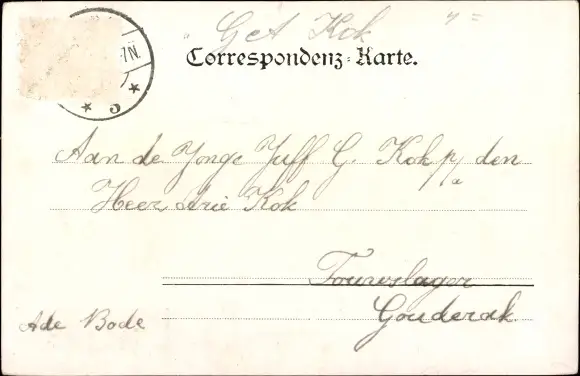 Get Kok
-7N.
Correspondenz-Karte.
* 5 *
Aan de Jonge Juff G. Kok p/a den
Heer Arie Kok
Touwslager
Gouderak
Ade Bode